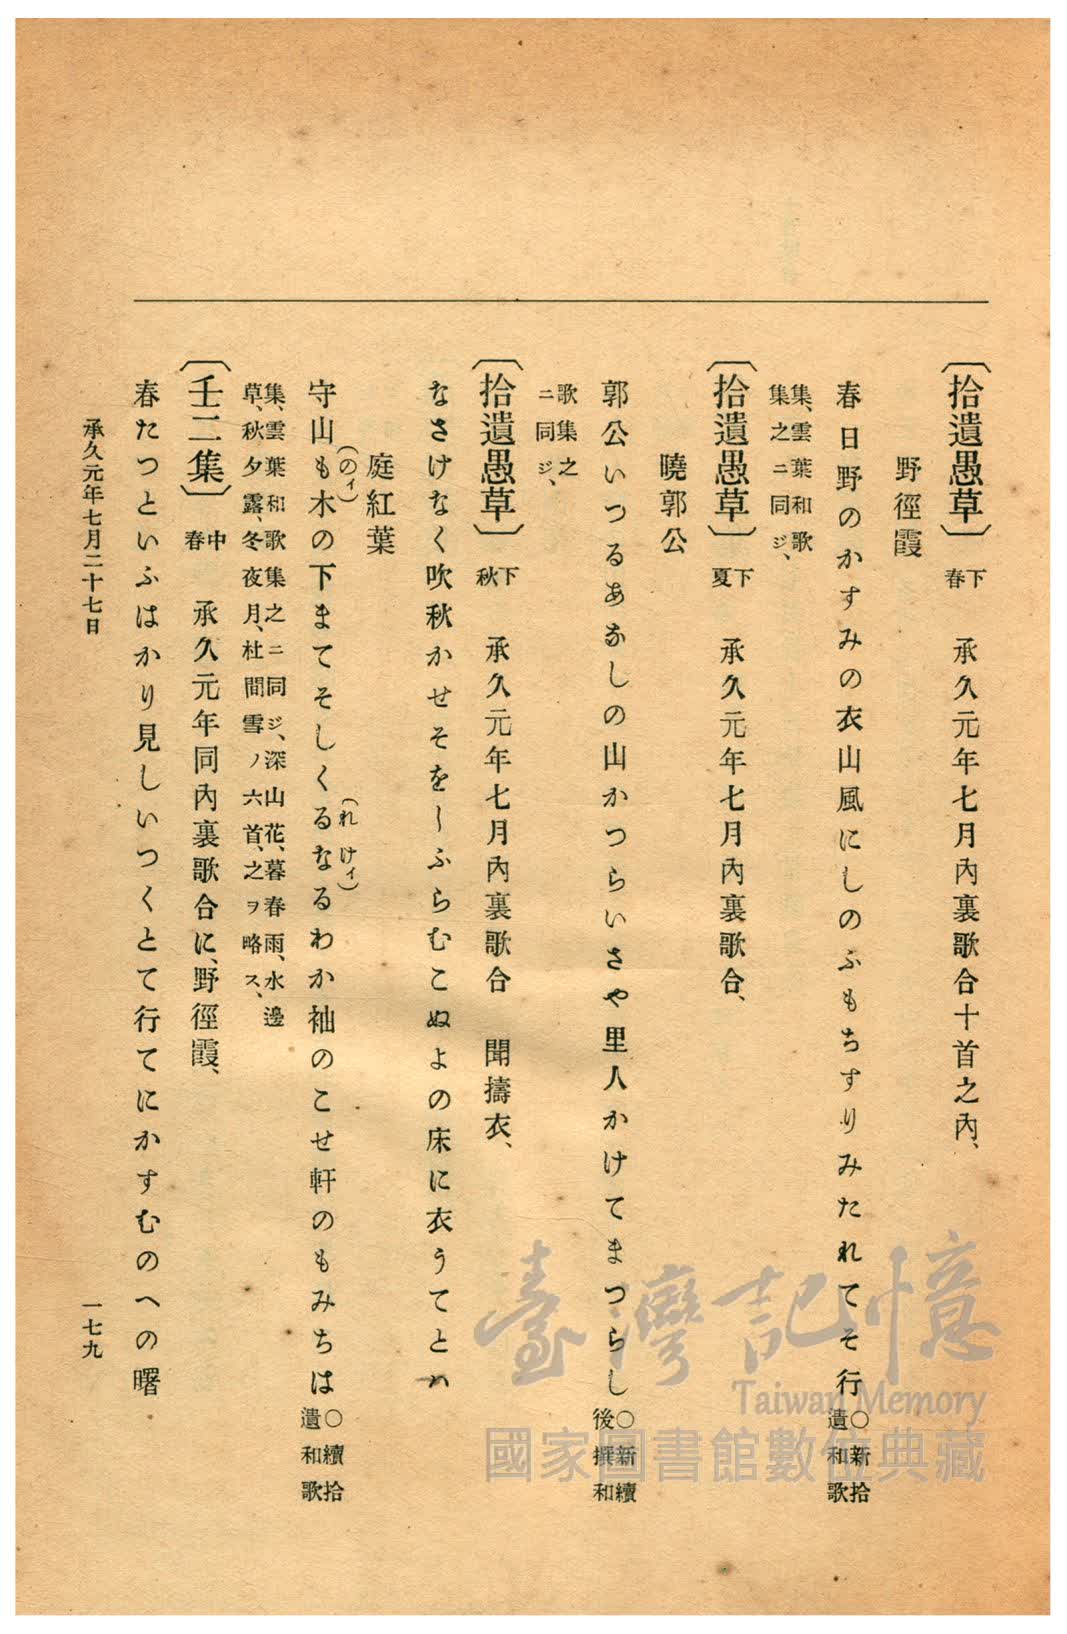 〔拾遺愚草〕下春　承久元年七月內裏歌合十首之內、
野徑霞
春日野のかすみの衣山風にしのふもちすりみたれてそ行○新拾遺和歌
集、雲葉和歌集之ニ同ジ、
〔拾遺愚草〕下夏　承久元年七月內裏歌合、
曉郭公
郭公いつるあなしの山かつらいさや里人かけてまつらし○新續後撰和
歌集之ニ同ジ、
〔拾遺愚草〕下秋　承久元年七月內裏歌合　聞擣衣、
なさけなく吹秋かせそをしふらむこぬよの床に衣うてとハ
庭紅葉
守山も(のイ)木の下まてそしくるなる(れけイ)わか袖のこせ軒のもみちは○續拾遺和歌
集、雲葉和歌集之ニ同ジ、深山花、暮春雨、水邊草、秋夕露、冬夜月、杜間雪ノ六首、之ヲ略ス、
〔壬二集〕中春　承久元年同內裏歌合に、野徑霞、
春たつといふはかり見しいつくとて行てにかすむのへの曙
承久元年七月二十七日
一七九
臺灣記憶
Taiwan Memory
國家圖書館數位典藏